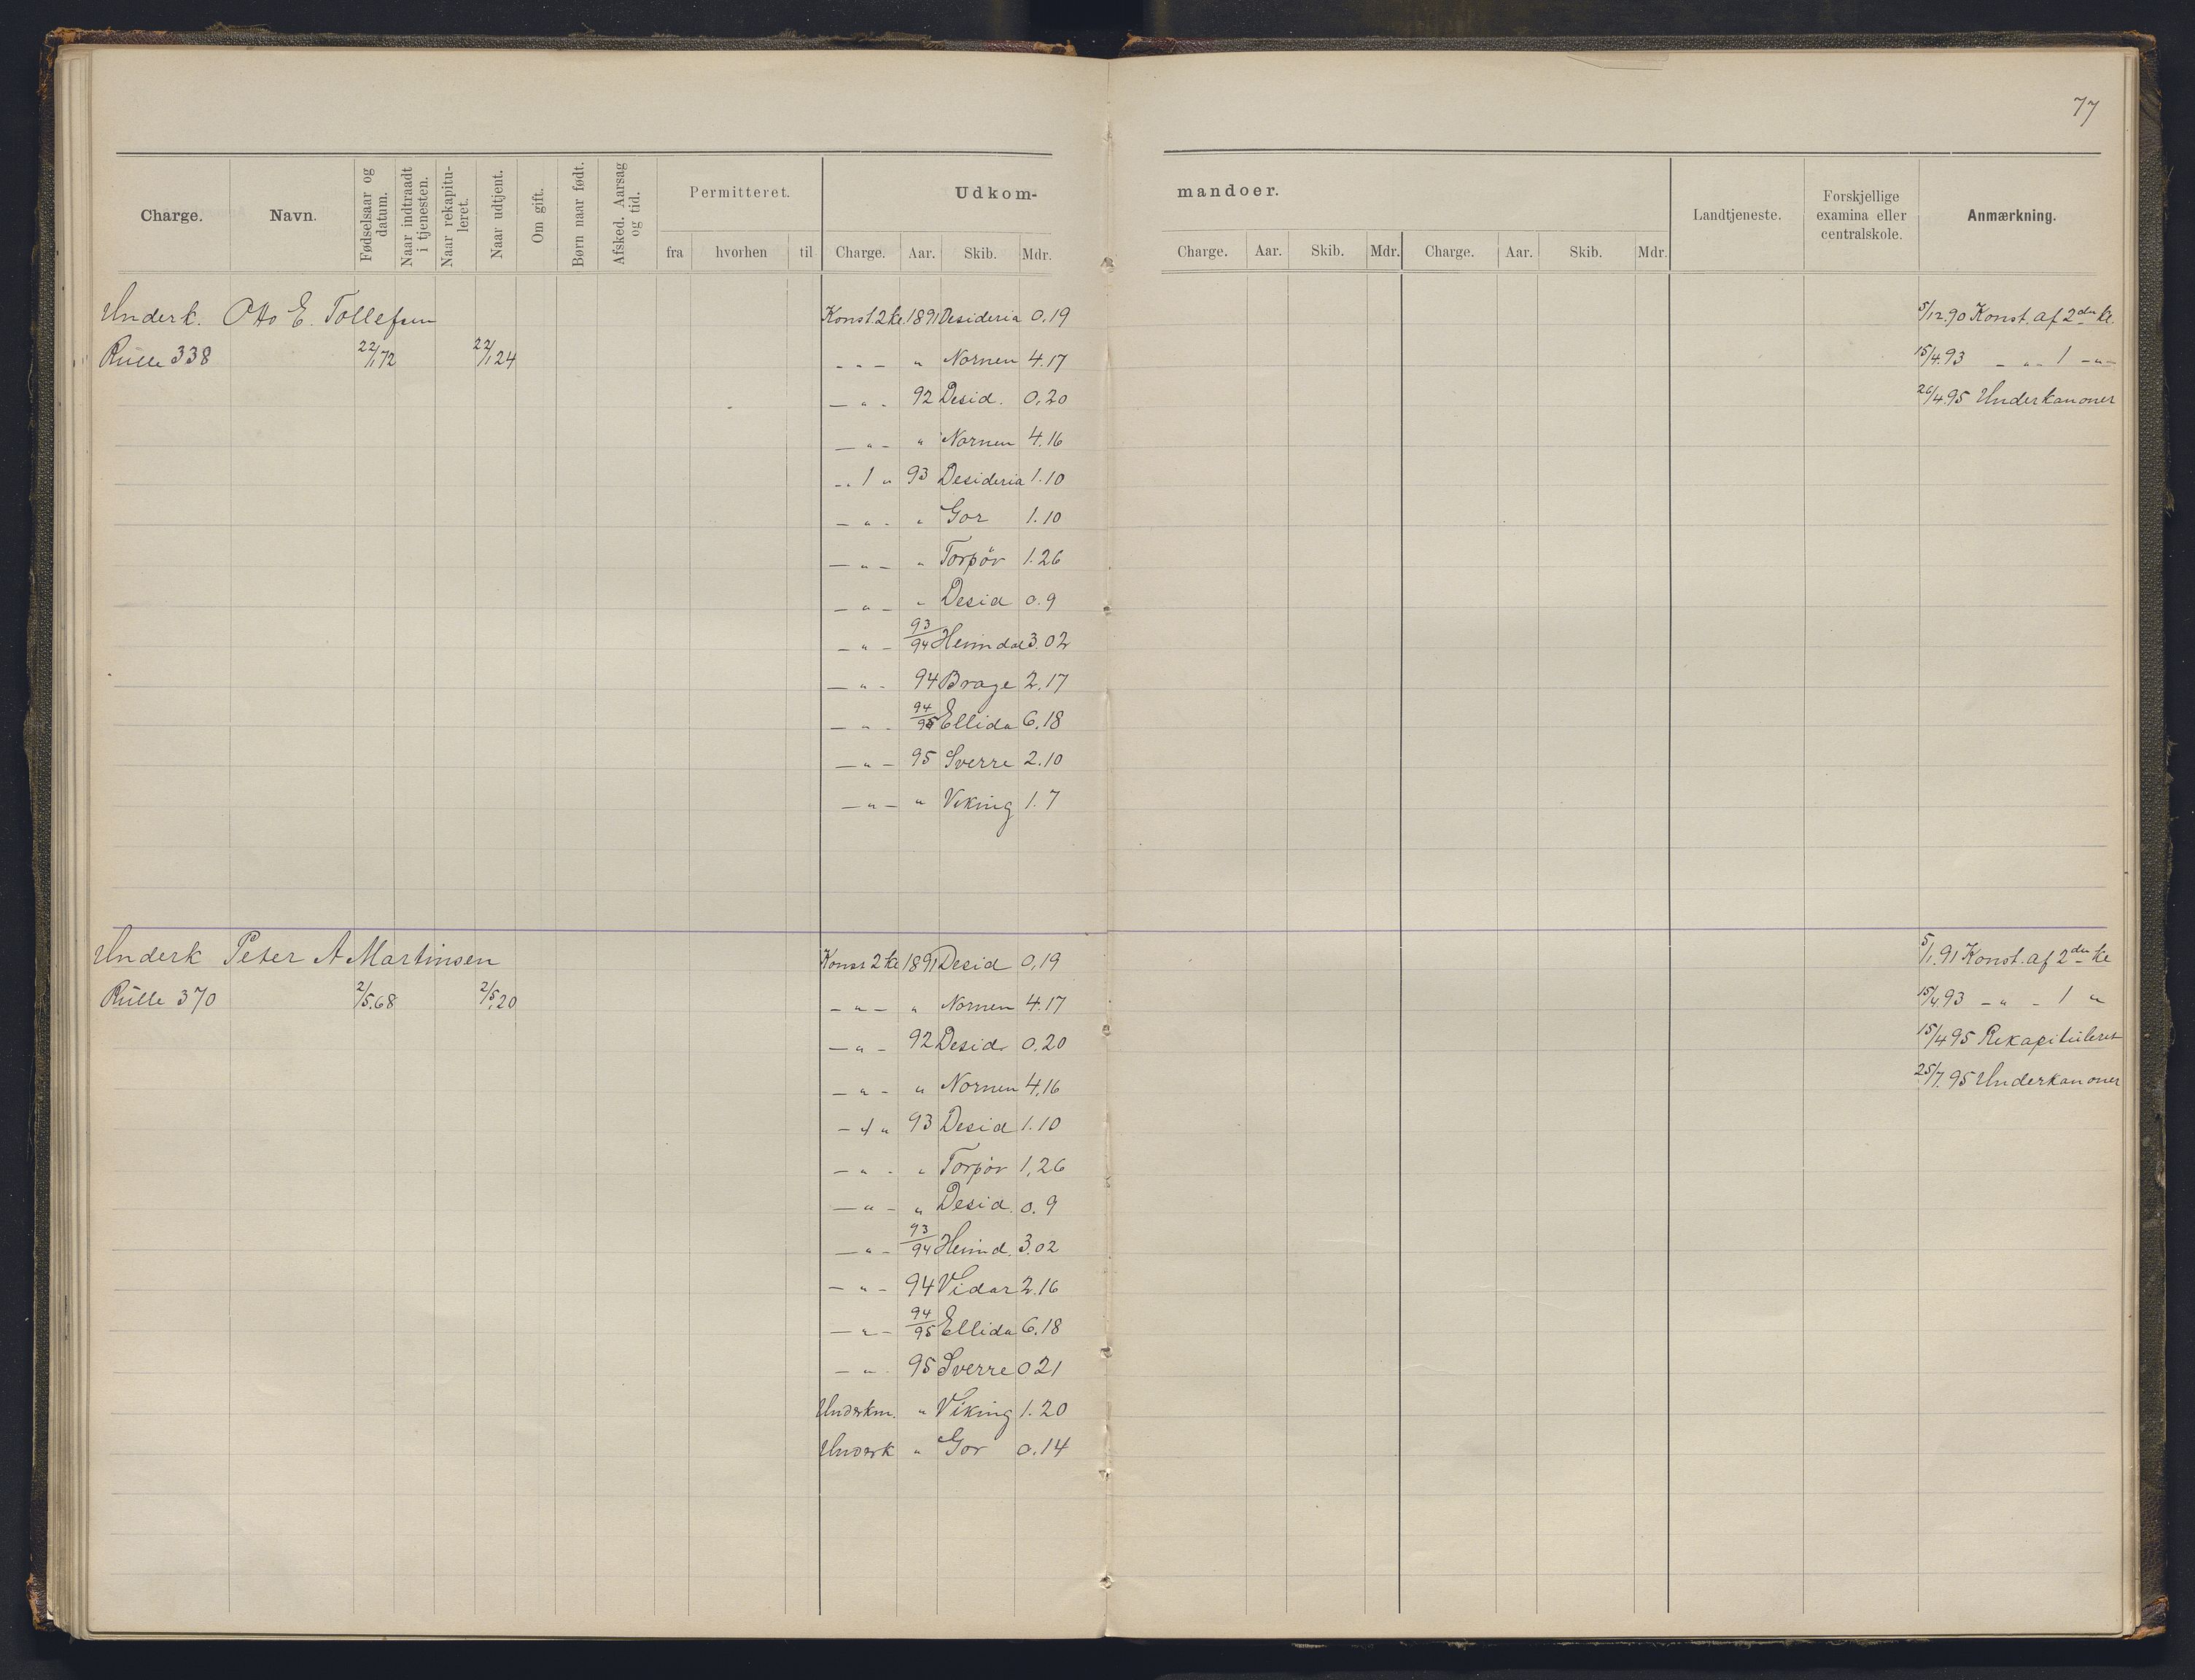 77
Charge. Navn. Fødselsaar og datum. Naar indtraadt i tjenesten. Naar rekapitu-leret. Naar udtjent. Om gift. Børn naar født. Afsked. Aarsag og tid. Permitteret. Udkom-mandoer. Landtjeneste. Forskjellige examina eller centralskole. Anmærkning.
fra hvorhen til Charge. Aar. Skib. Mdr. Charge. Aar. Skib. Mdr. Charge. Aar. Skib. Mdr.
Underk. Otto E. Tollefsen Konst. 2 kl. 1891 Desideria 0.19 5/12.90 Konst. af 2den kl.
Rulle 338 22/1 72 22/1 24 - " - " Nornen 4.17 15/4.93 - " - 1 - " -
- " - 92 Desid. 0.20 26/4.95 Underkanoner
- " - " Nornen 4.16
- " 1 " 93 Desideria 1.10
- " - " Gor 1.10
- " - " Torpör 1.26
- " - " Desid 0.9
- " - 93/94 Heimdal 3.02
- " - 94 Brage 2.17
- " - 94/95 Ellida 6.18
- " - 95 Sverre 2.10
- " - " Viking 1.7
Underk Peter A Martinsen Konst 2 kl 1891 Desid 0.19 5/1.91 Konst. af 2den kl
Rulle 370 2/5.68 2/5.20 - " - " Nornen 4.17 15/4 93 - " - 1 "
- " - 92 Desid. 0.20 15/4 95 Rekapituleret
- " - " Nornen 4.16 25/7.95 Underkanoner
- 1 " 93 Desid 1.10
- " - " Torpör 1.26
- " - " Desid. 0.9
- " - 93/94 Heimd. 3.02
- " - 94 Vidar 2.16
- " - 94/95 Ellida 6.18
- " - 95 Sverre 0 21
Underkn. " Viking 1.20
Underk " Gor 0.14